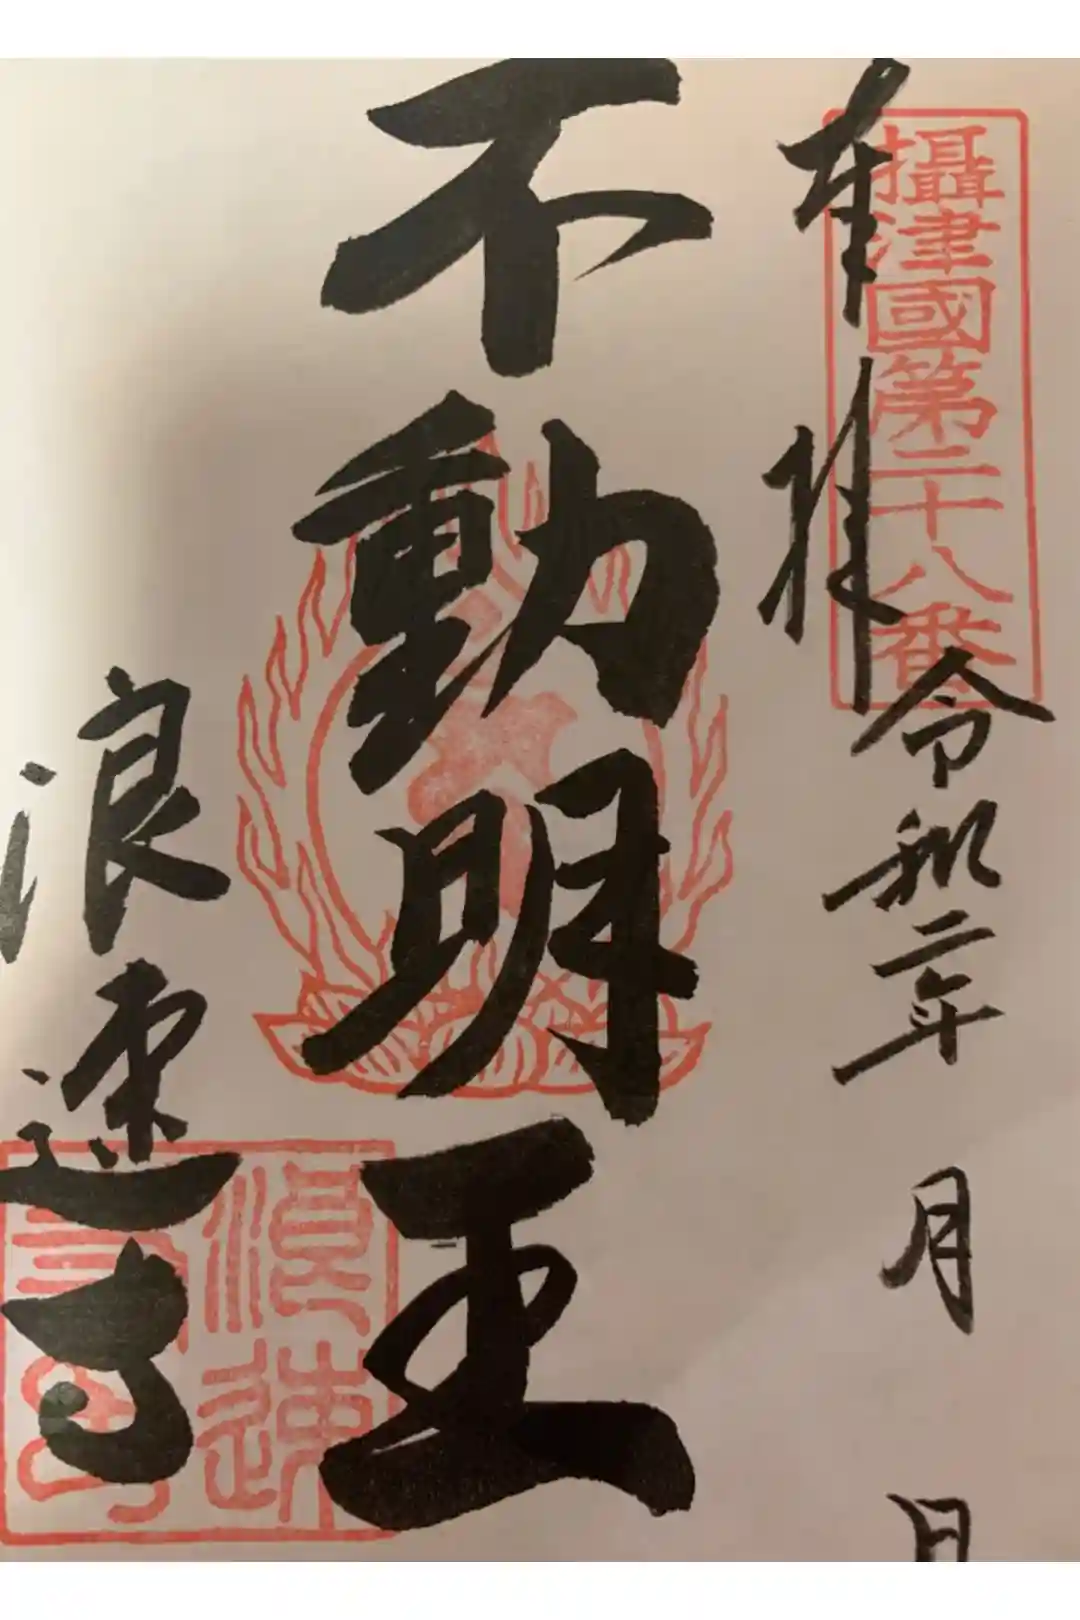 奉拝
攝津國第二十八番
令和二年 月 日
不動明王
浪速寺
浪速寺印